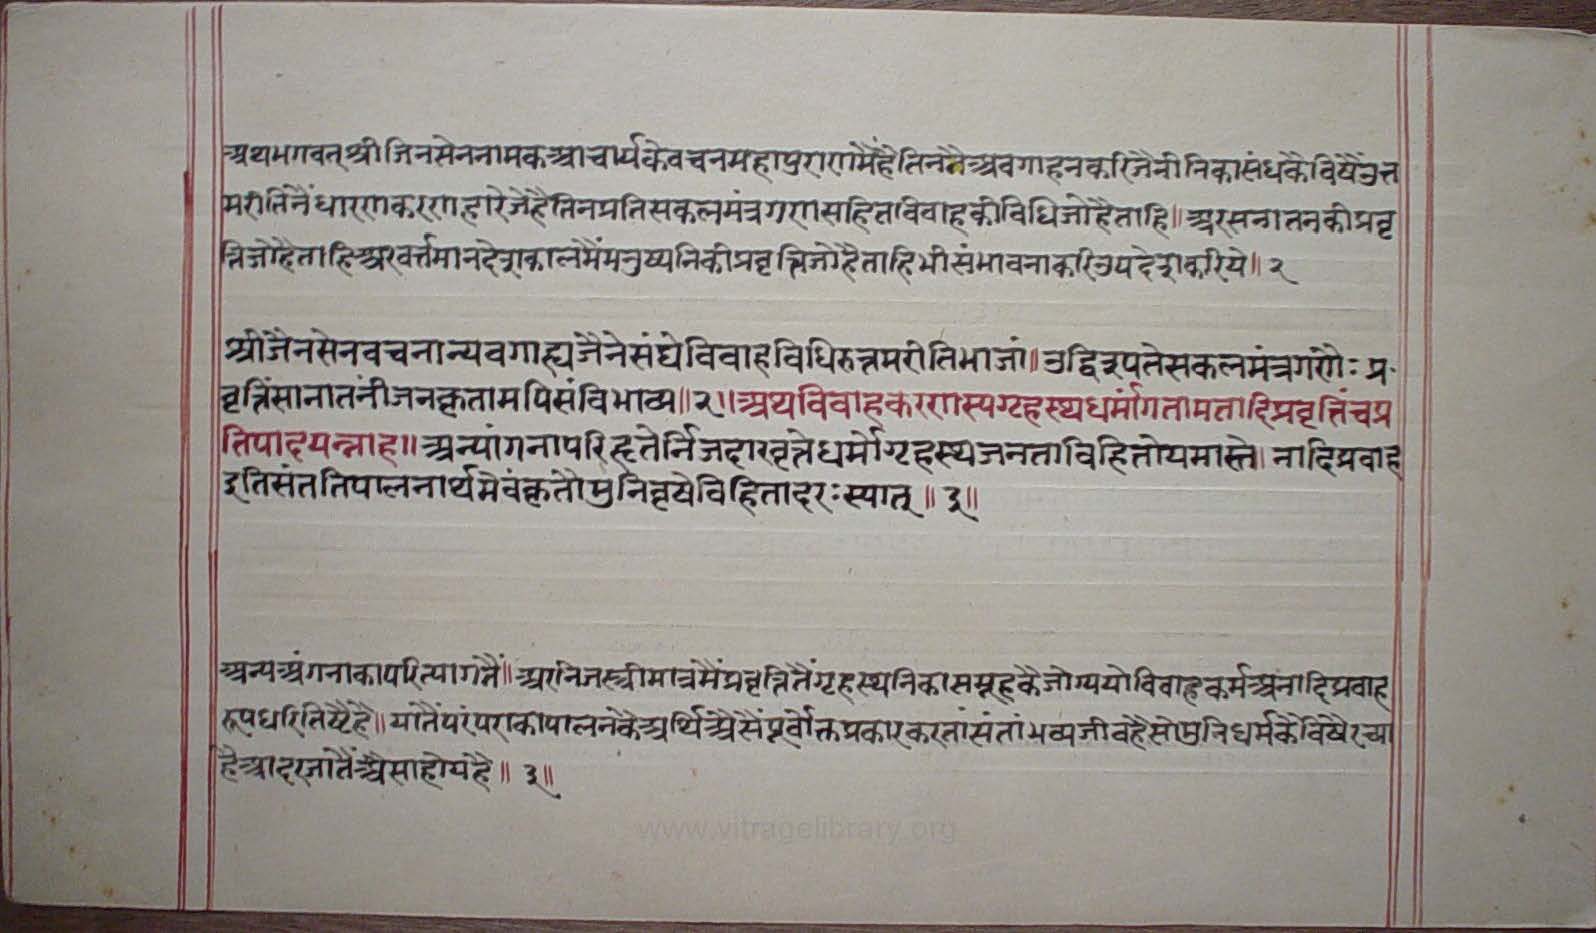 अथभगवत्श्रीजिनसेननामकआचार्यकेवचनमहापुराणमैंहैतिनतैअवगाहनकरिजैनीनिकासंघकैविषैंउत्त
मरीतिनैंधारणकरणहारेजेहैतिनप्रतिसकलमंत्रगणसहितविवाहकीविधिजोहैताहि॥अरसनातनकीप्रवृ
त्तिजोहैताहिअरवर्त्तमानदेशकालमैंमनुष्यनिकीप्रवृत्तिजोहैताहिभीसंभावनाकरिउपदेशकरिये॥२
श्रीजैनसेनवचनान्यवगाह्यजैनेसंघेविवाहविधिरुत्तमरीतिभाजां॥उद्दिश्यतेसकलमंत्रगणैःप्र-
वृत्तिंसानातनींजनकृतामपिसंविभाव्य॥२॥अथविवाहकरणस्यगृहस्थधर्मांगतामतादिप्रवृत्तिंचप्र
तिपादयन्नाह॥अन्यांगनापरिहृतेर्निजदारवृत्तेधर्मोगृहस्थजनताविहितोयमास्ते॥नादिप्रवाह
इतिसंततिपालनार्थमेवंकृतौमुनिवृषेविहितादरःस्यात्॥३॥
अन्यअंगनाकापरित्यागतैं॥अरनिजस्त्रीमात्रमैंप्रवृत्तितैंगृहस्थनिकासमूहकैजोग्ययोविवाहकर्मअनादिप्रवाह
रूपधरितिष्टैहै॥यातैंपरंपराकापालनेकैअर्थिअैसैंपूर्वोक्तप्रकारकरतांसंतांभव्यजीवहैसोमुनिधर्मकेविषैरच्या
हैआदरजातैंअैसाहोयहै॥३॥
www.vitragelibrary.org